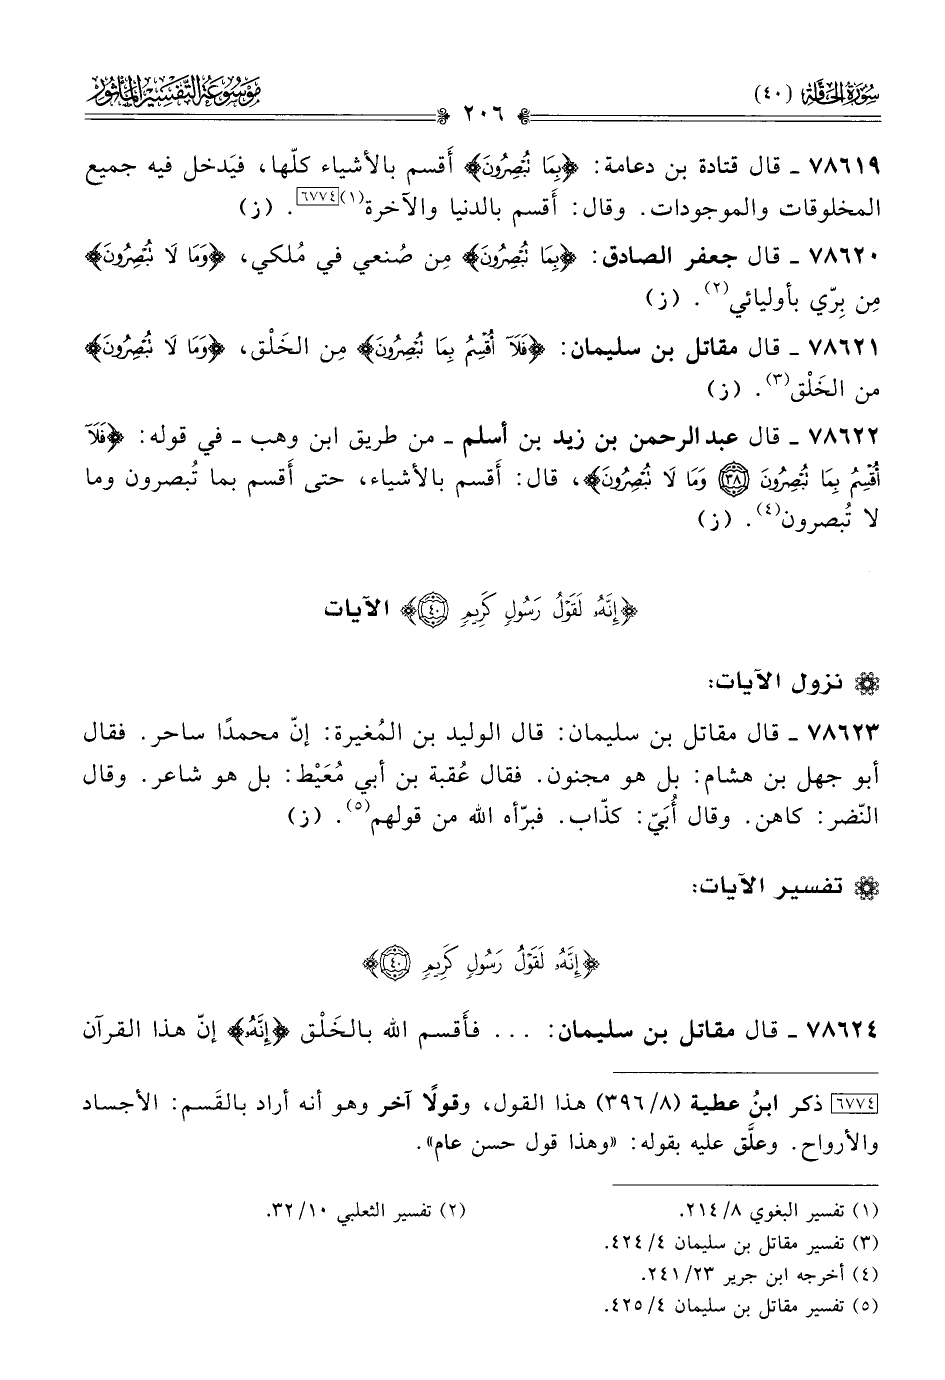 سُورَةُ الحَاقَّة (٤٠)
٢٠٦
مَوْسُوعَة التَّفْسِير المَأثُور
٧٨٦١٩ ـ قال قتادة بن دعامة: ﴿بِمَا تُبْصِرُونَ﴾ أَقسم بالأشياء كلّها، فيَدخل فيه جميع
المخلوقات والموجودات. وقال: أَقسم بالدنيا والآخرة(١)[٦٧٧٤]. (ز)
٧٨٦٢٠ ـ قال جعفر الصادق: ﴿بِمَا تُبْصِرُونَ﴾ مِن صُنعي في مُلكي، ﴿وَمَا لَا تُبْصِرُونَ﴾
مِن بِرّي بأوليائي(٢). (ز)
٧٨٦٢١ ـ قال مقاتل بن سليمان: ﴿فَلَآ أُقْسِمُ بِمَا تُبْصِرُونَ﴾ مِن الخَلْق، ﴿وَمَا لَا تُبْصِرُونَ﴾
من الخَلْق(٣). (ز)
٧٨٦٢٢ ـ قال عبد الرحمن بن زيد بن أسلم ـ من طريق ابن وهب ـ في قوله: ﴿فَلَآ
أُقْسِمُ بِمَا تُبْصِرُونَ ٣٨ وَمَا لَا تُبْصِرُونَ﴾، قال: أَقسم بالأشياء، حتى أَقسم بما تُبصرون وما
لا تُبصرون(٤). (ز)
﴿إِنَّهُۥ لَقَوْلُ رَسُولٍ كَرِيمٍ ٤٠﴾ الآيات
نزول الآيات:
٧٨٦٢٣ ـ قال مقاتل بن سليمان: قال الوليد بن المُغيرة: إنّ محمدًا ساحر. فقال
أبو جهل بن هشام: بل هو مجنون. فقال عُقبة بن أبي مُعَيْط: بل هو شاعر. وقال
النّضر: كاهن. وقال أُبَيّ: كذّاب. فبرّأه الله من قولهم(٥). (ز)
تفسير الآيات:
﴿إِنَّهُۥ لَقَوْلُ رَسُولٍ كَرِيمٍ ٤٠﴾
٧٨٦٢٤ ـ قال مقاتل بن سليمان: ... فأَقسم الله بالخَلْق ﴿إِنَّهُۥ﴾ إنّ هذا القرآن
[٦٧٧٤] ذكر ابنُ عطية (٣٩٦/٨) هذا القول، وقولًا آخر وهو أنه أراد بالقَسم: الأجساد
والأرواح. وعلَّق عليه بقوله: «وهذا قول حسن عام».
(١) تفسير البغوي ٢١٤/٨. (٢) تفسير الثعلبي ٣٢/١٠.
(٣) تفسير مقاتل بن سليمان ٤٢٤/٤.
(٤) أخرجه ابن جرير ٢٤١/٢٣.
(٥) تفسير مقاتل بن سليمان ٤٢٥/٤.